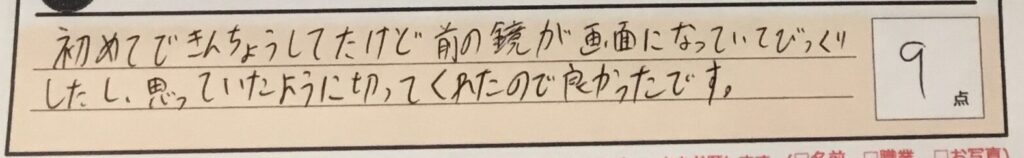 初めてできんちょうしてたけど前の鏡が画面になっていてびっくり
したし、思っていたように切ってくれたので良かったです。
9
点
□名前 □職業 □お写真)